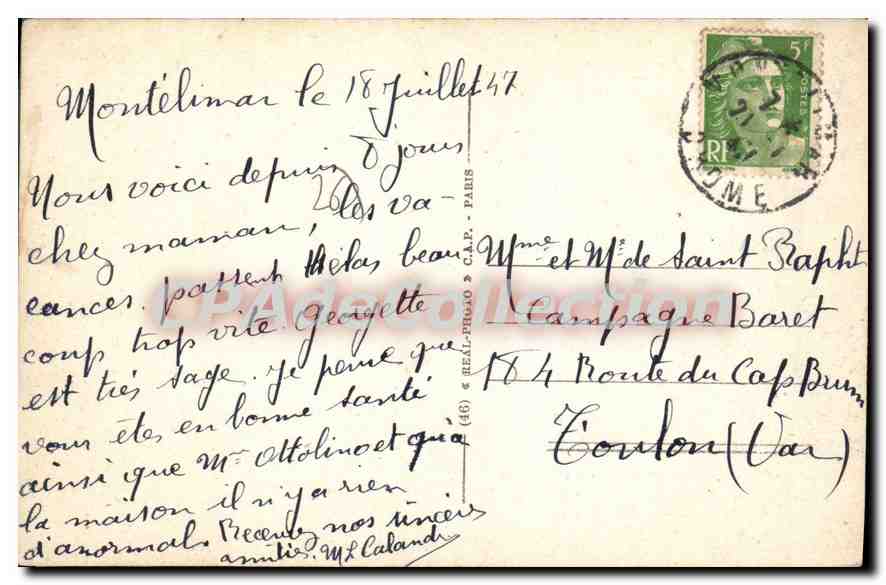 Montélimar le 18 Juillet 47
Nous voici depuis 8 jours
chez maman, les va-
cances passent Hélas beau
coup trop vite. Georgette
est très sage. Je pense que
vous êtes en bonne santé
ainsi que Mr Ottolino et qu'à
la maison il n'y a rien
d'anormal. Recevez nos sincères
amitiés. ML Calandr
(46) « REAL-PHOTO » C.A.P. - PARIS
5F
POSTES
RF
DROME
Mme et Mr de Saint Rapht
Campagne Baret
184 Route du Cap Brun
Toulon (Var)
CPADeCollection